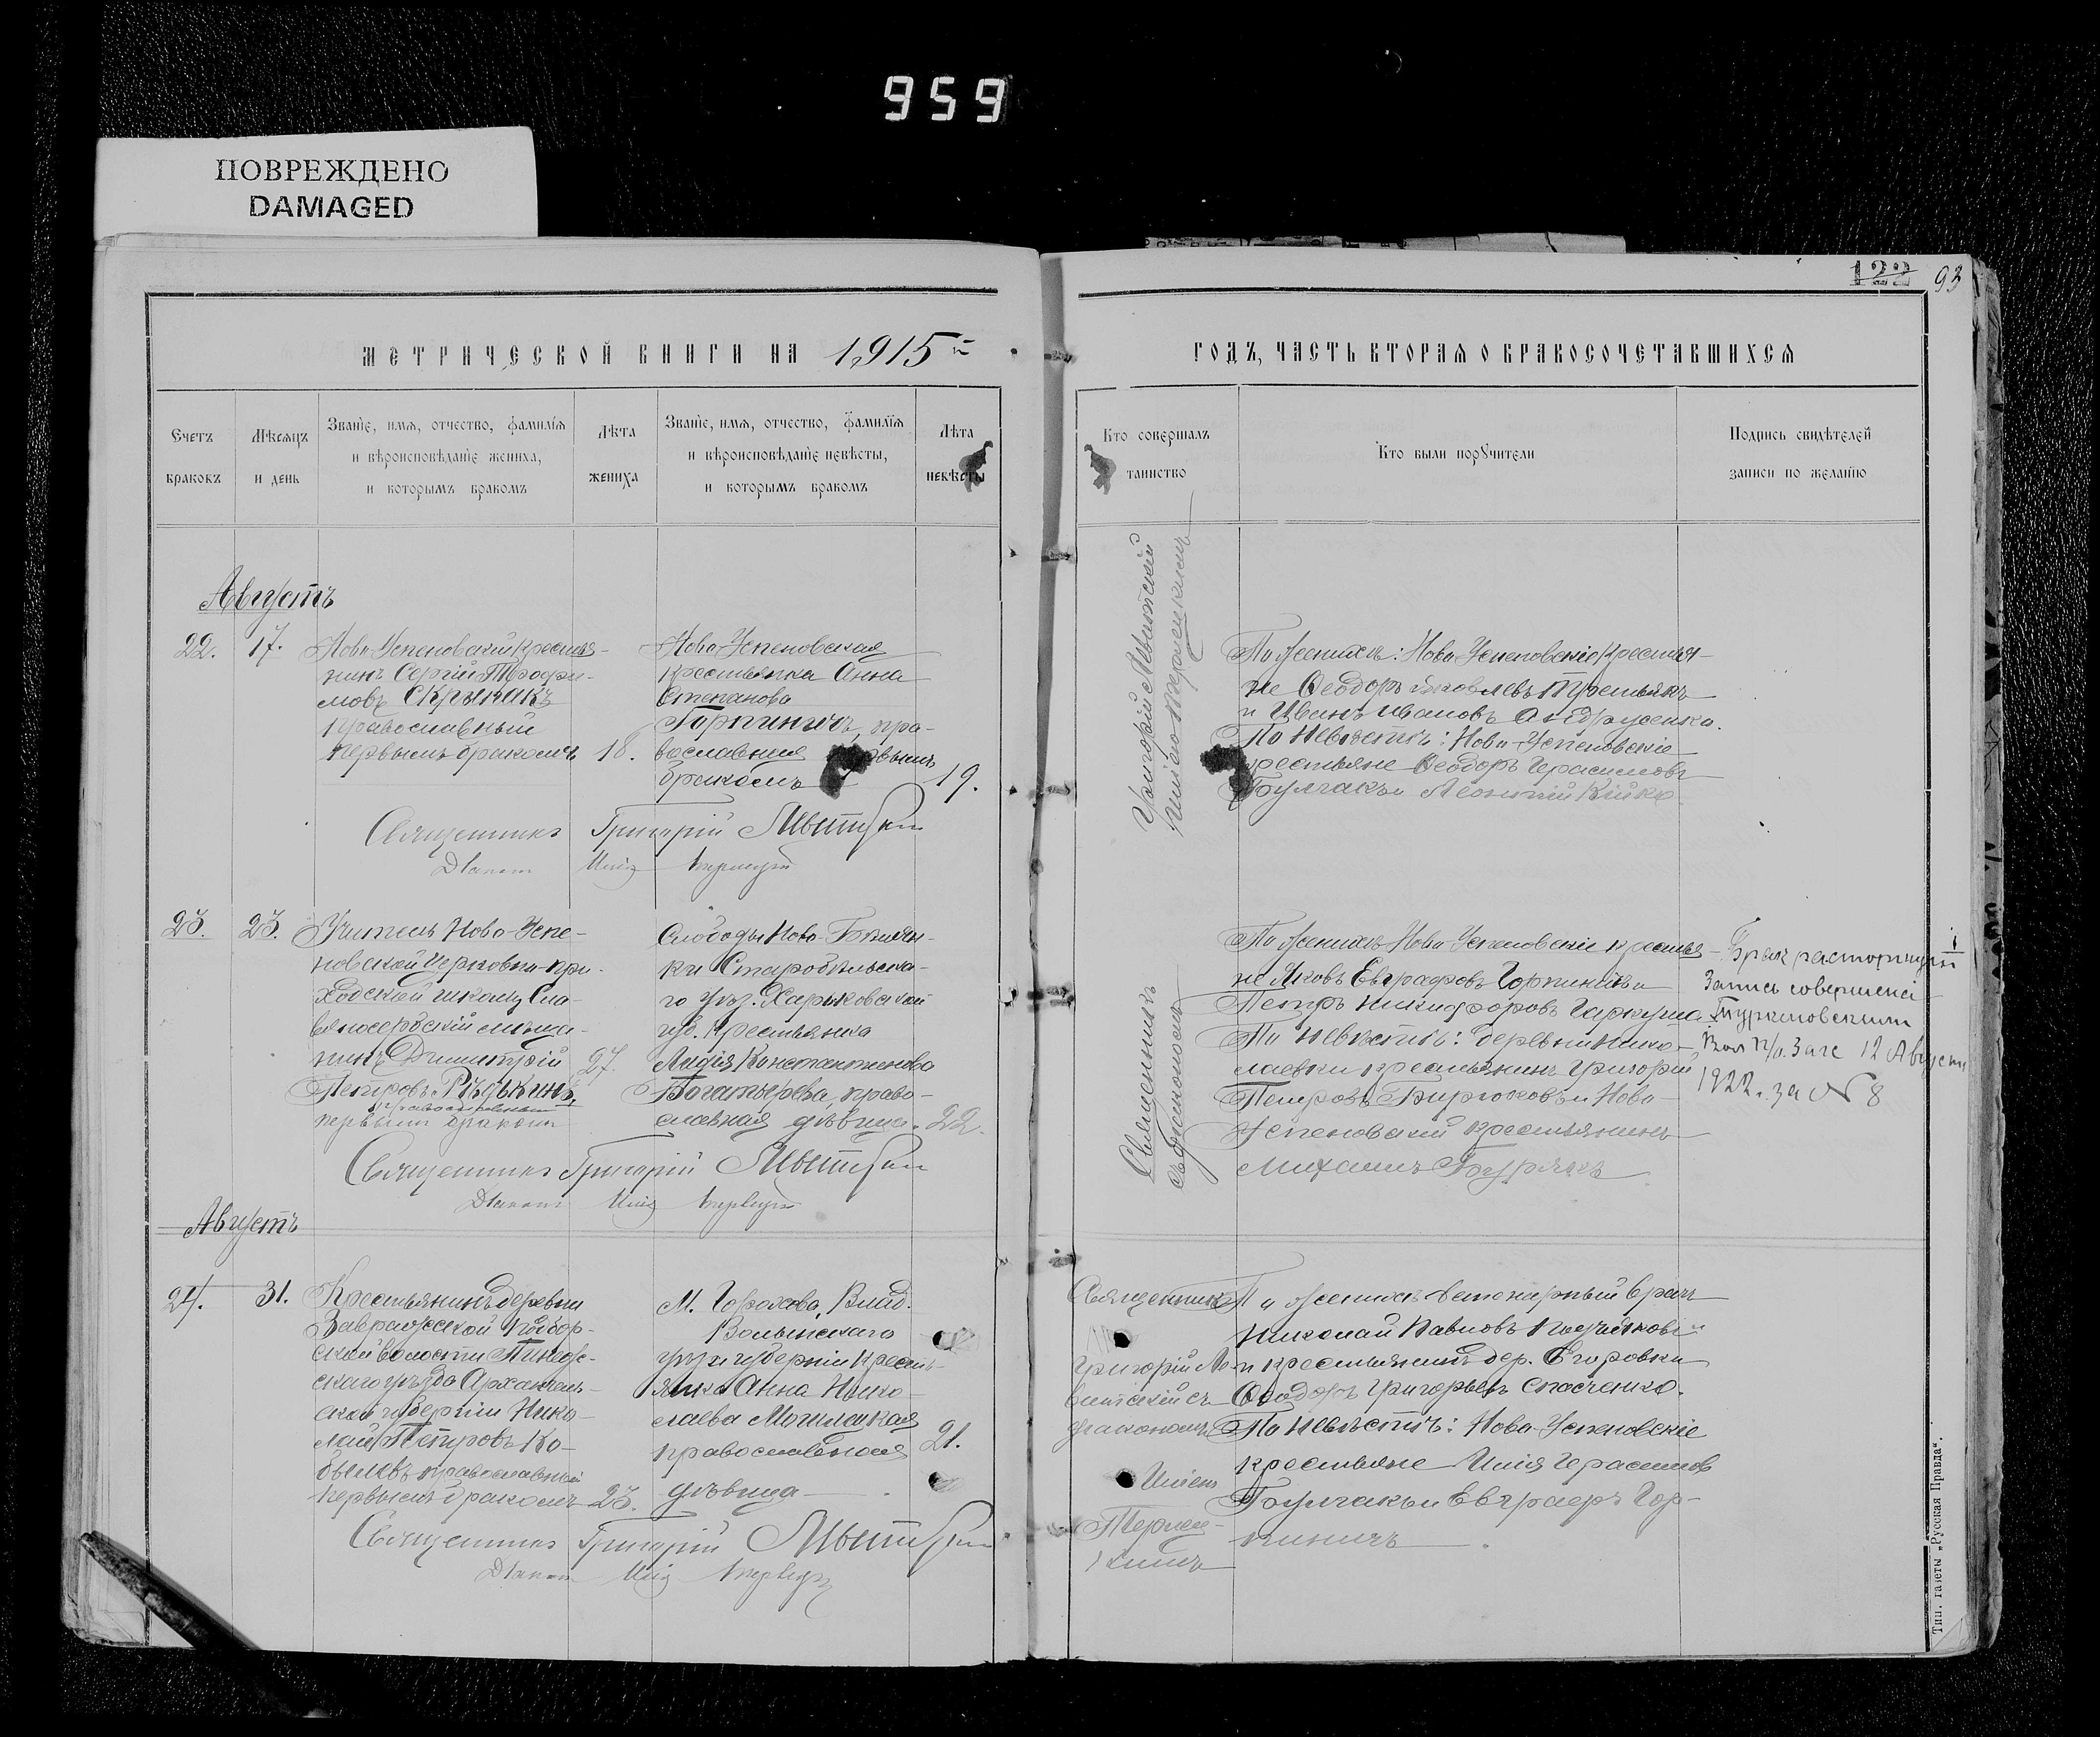 959
ПОВРЕЖДЕНО
DAMAGED
122 93
МЕТРИЧЕСКОЙ КНИГИ НА 1915й
ГОДЪ, ЧАСТЬ ВТОРАЯ О БРАКОСОЧЕТАВШИХСЯ
Счетъ браковъ
Мѣсяцъ и день
Званіе, имя, отчество, фамилія
и вѣроисповѣданіе жениха,
и которымъ бракомъ
Лѣта
жениха
Званіе, имя, отчество, фамилія
и вѣроисповѣданіе невѣсты,
и которымъ бракомъ
Лѣта
невѣсты
Кто совершалъ
таинство
Кто были поручители
Подпись свидѣтелей
записи по желанію
Августъ
22. 17.
Ново-Успеновскій крестья-
нинъ Сергій Трофи-
мовъ Скрыпакъ
православный
первымъ бракомъ 18.
Ново-Успеновская
крестьянка Анна
Степанова
Горпиничъ, пра-
вославная
бракомъ 19.
Священникъ Григорій
Григорій
По женихѣ: Ново-Успеновскіе крестья-
не Ѳеодоръ Яковлевъ
и Иванъ Ивановъ Андрусенко.
По невѣстѣ: Ново-Успеновскіе
крестьяне Ѳеодоръ Герасимовъ
Булгакъ и Леонтій Бойко
23. 23.
Учитель Ново-Успе-
новской Церковно-при-
ходской школы Сла-
вяносербскій мѣща-
нинъ Димитрій 27.
Петровъ Рѣдькинъ,
православный
первымъ бракомъ
Слободы Ново-
ки Старобѣльска-
го уѣз. Харьковской
губ. крестьянка
Лидія Константинова
Богатырева, право-
славная дѣвица. 22.
Священникъ Григорій
Священникъ
съ діакономъ
По женихѣ Ново-Успеновскіе крестья-
не Яковъ Евграфовъ Горпиничъ и
Петръ Никифоровъ Гаркуша
По невѣстѣ: деревни Нико-
лаевки крестьянинъ Григорій
Петровъ Бирюковъ и Ново-
Успеновскій крестьянинъ
Михаилъ Бурякъ
Брак расторгнутъ
Запись совершена
12 Август
1922 г. за № 8
Августъ
24. 31.
Крестьянинъ деревни
Завражской
ской волости Пинеж-
скаго уѣзда Архангель-
ской губерніи Нико-
лай Петровъ Ко-
былевъ православный
первымъ бракомъ 23.
М. Горохова, Влад.
Волынскаго
уѣз. губерніи кресть-
янка Анна Нико-
лаева Могилецкая
православная 21.
дѣвица
Священникъ Григорій
Священникъ
Григорій
съ
діакономъ
По женихѣ ветеринарный врачъ
Николай Павловъ
и крестьянинъ дер. Егоровки
Ѳеодоръ Григорьевъ Спасченко.
По невѣстѣ: Ново-Успеновскіе
крестьяне Илія Герасимов
Булгакъ и Евграфъ Гор-
пиничъ
Тип. газеты „Русская Правда“.